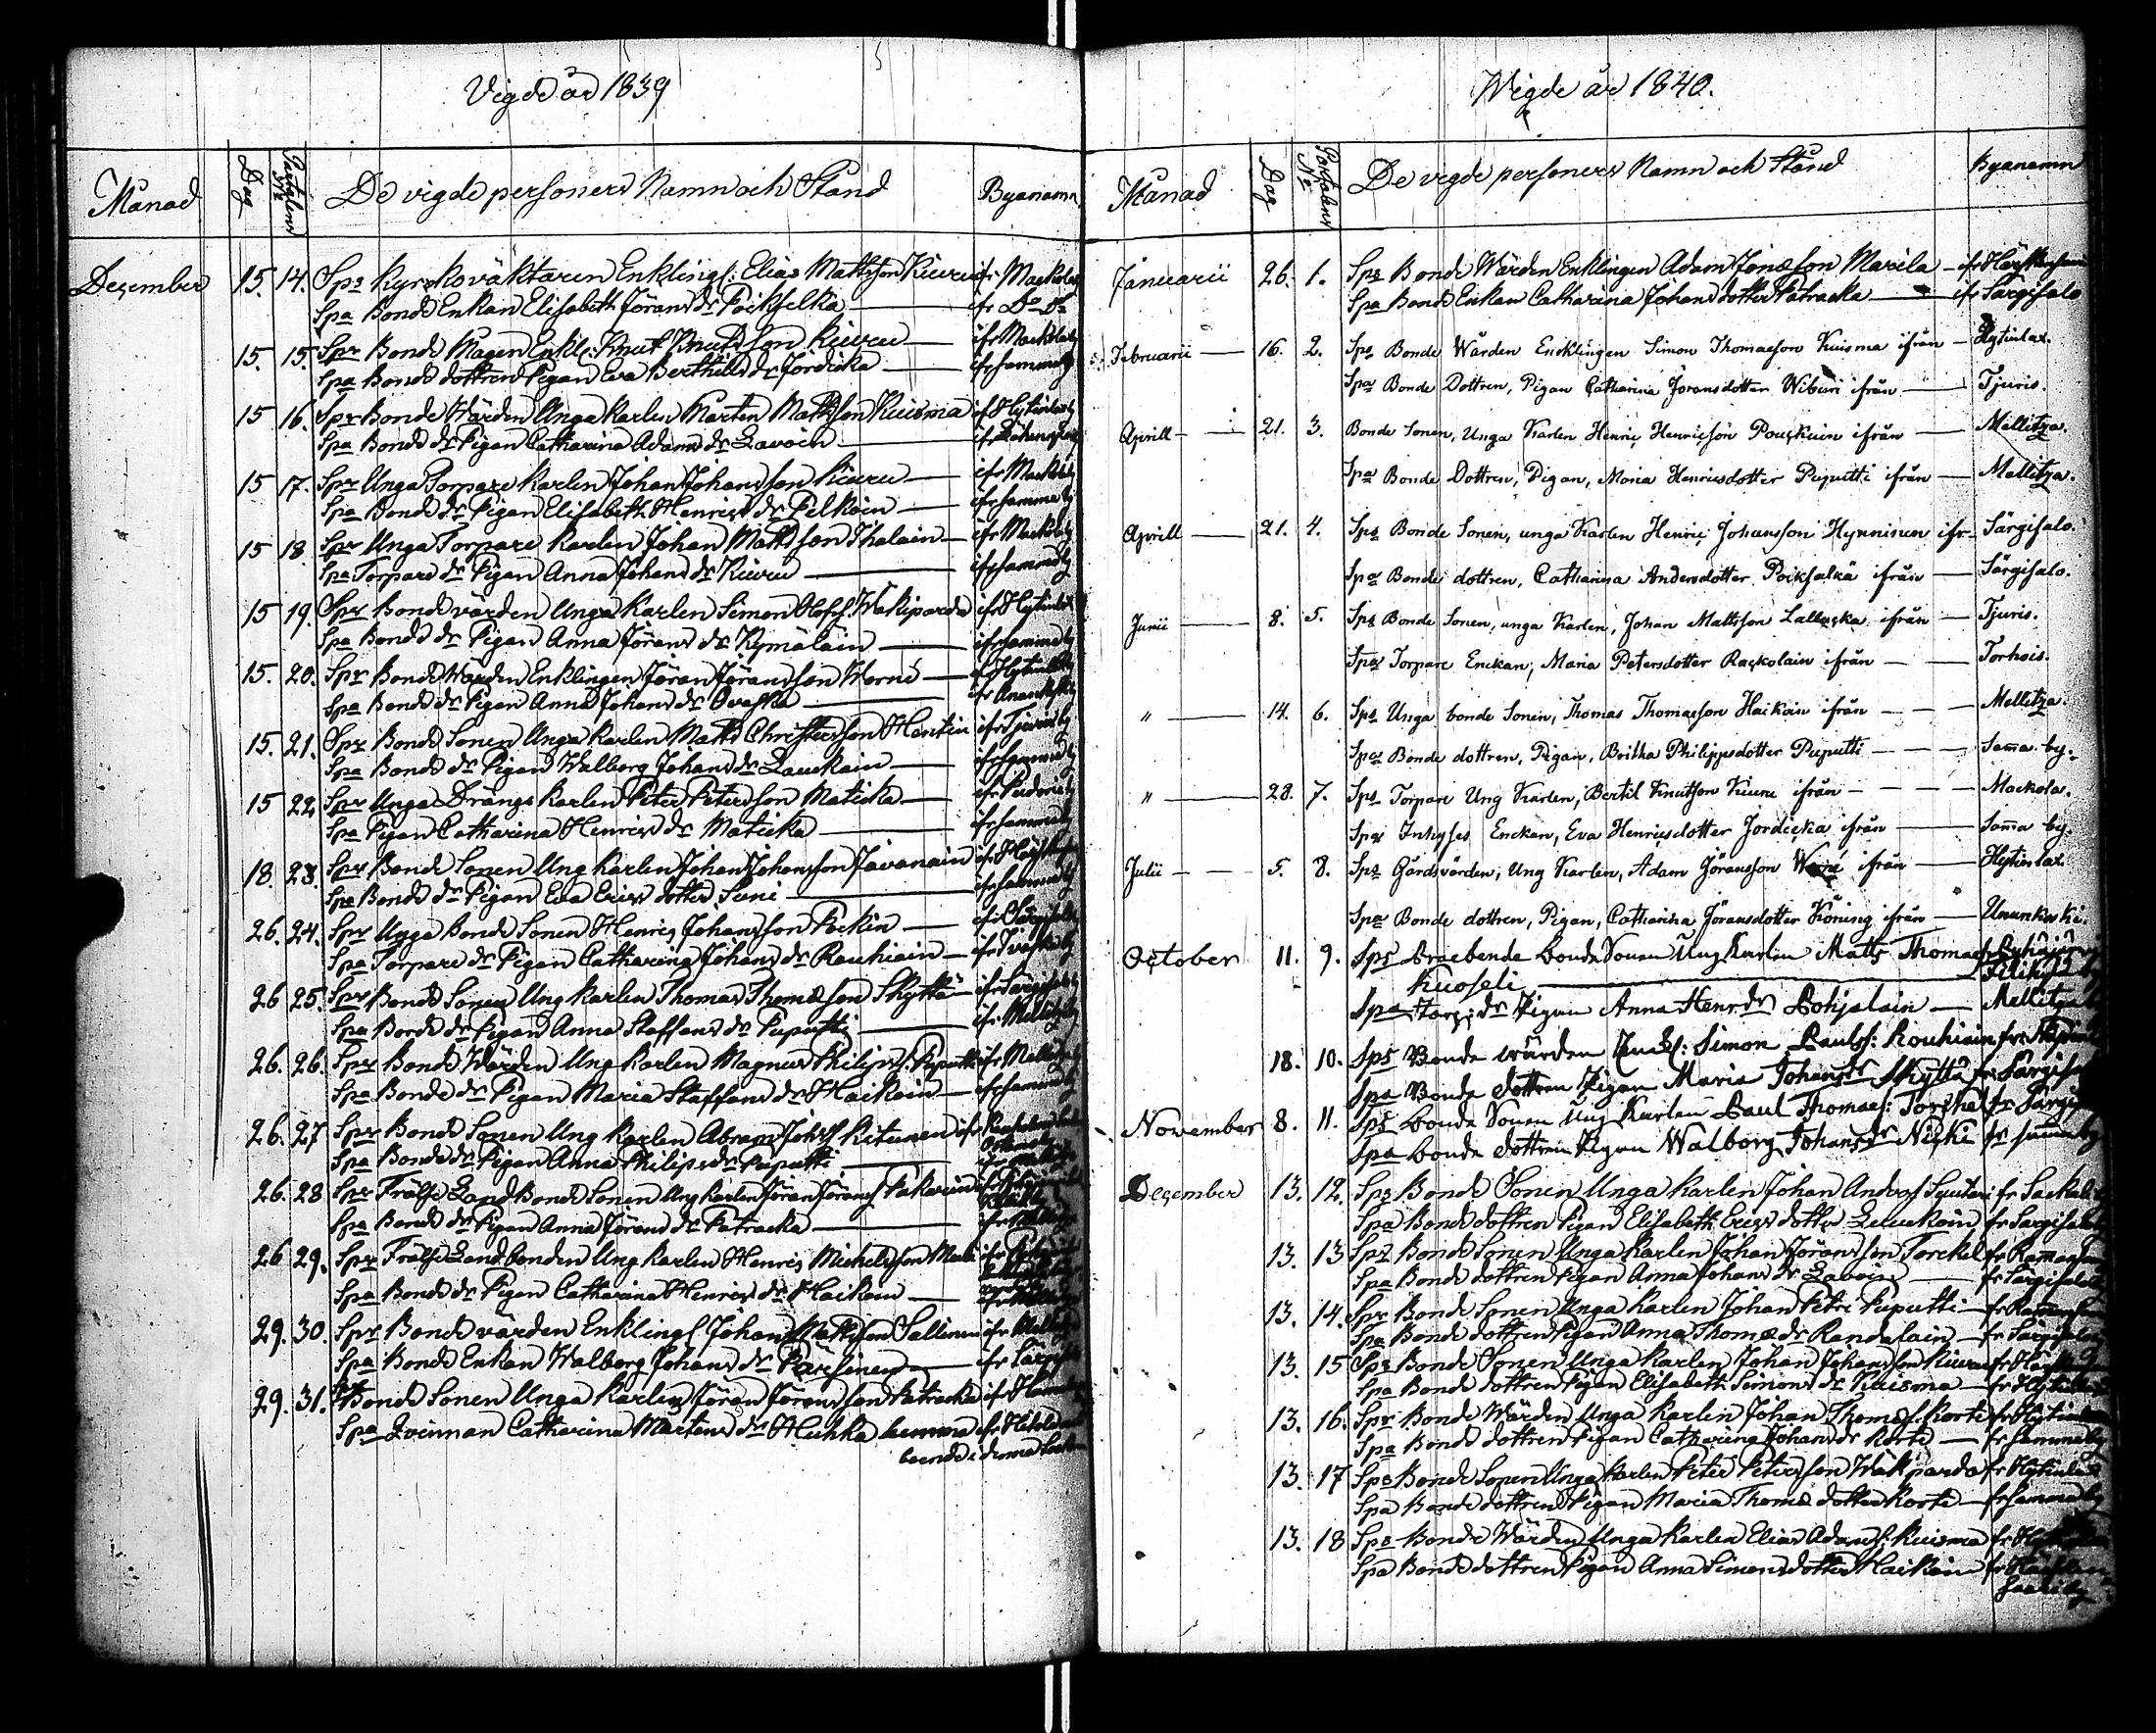 Vigde år 1839
Månad Dag Partalens No De vigde personers Namn och Stånd Byanamn
December 15. 14. Spr Kyrkoväktaren Enklingf: Elias Mattsson Kiuru ifr Mackola
Spa Bonde Enkan Elisabeth Jörans dr Poikselka ifr Do Do
15. 15. Spr Bonde Magen Enkl: Knut Knutsson Kiuru ifr Mackola
Spa Bonde dottren Pigan Eva Berthils dr Jordicka ifr samma by
15 16. Spr Bonde Wärden Unga Karlen Mårten Mattsson Kuisma if Hytinlax
Spa Bonde dr Pigan Catharina Adams dr Lavoin
15 17. Spr Unga Torpare Karlen Johan Johansson Kiuru ifr Mackola
Spa Bonde dr Pigan Elisabeth Henrics dr Pelkoin ifr samma by
15 18. Spr Unga Torpare Karlen Johan Mattsson Ihalain ifr Mackola
Spa Torpare dr Pigan Anna Johans dr Kiuru ifr samma by
15 19. Spr Bonde värden Unga Karlen Simon Olofsf. Wakiparda ifr Hytinlax
Spa Bonde dr Pigan Anna Jörans dr Kymäläin ifr samma by
15. 20. Spr Bonde Wärden Enklingen Jöran Jöransson Worne if Hytinlax
Spa Bonde dr Pigan Anna Johans dr Ovaska
15. 21. Spr Bonde Sonen Unga Karlen Matts Christersson Hentin ifr Tjuris by
Spa Bonde dr Pigan Walborg Johans dr Lauckain ifr samma by
15 22 Spr Unga Drängs Karlen Peter Petersson Maticka
Spa Pigan Catharina Henrics dr Maticka ifr samma by
18. 23. Spr Bonde Sonen Ung Karlen Johan Johansson Javanain
Spa Bonde dr Pigan Eva Erics dotter Suni ifr samma by
26. 24. Spr Unga Bonde Sonen Henric Johansson Pockin ifr Särgisalo
Spa Torpare dr Pigan Catharina Johans dr Rauhiain
26 25. Spr Bonde Sonen Ung Karlen Thomas Thomæson Skyttä ifr Särgisalo
Spa Bonde dr Pigan Anna Staffans dr Puputti ifr Mellitza by
26. 26. Spr Bonde Wärden Ung Karlen Magnus Philipsf: Puputti ifr Mellitza
Spa Bonde dr Pigan Maria Staffans dr Haikoin ifr samma by
26. 27 Spr Bonde Sonen Ung Karlen Abram Johsf Kitunen
Spa Bonde dr Pigan Anna Philips dr Puputti
26. 28 Spr Frälse Land Bonde Sonen Ung Karlen Jöran Jöransf Pakarinen
Spa Bonde dr Pigan Anna Jörans dr Patracka
26 29. Spr Frälse Landbonden Ung Karlen Henric Michelsson
Spa Bonde dr Pigan Catharina Henrics dr Haikoin
29. 30. Spr Bonde värden Enklingf Johan Mattsson Sallinen
Spa Bonde Enkan Walborg Johans dr Pärsinen
29. 31. Spr Bonde Sonen Unga Karlen Jöran Jöransson Patracka
Spa Qvinnan Catharina Mårtens dr Hukka
Wigde år 1840.
Månad Dag Partalens No De vigde personers Namn och Stånd Byanamn
Januarii 26. 1. Spr Bonde Wärden Enklingen Adam Jonæson Marila
Spa Bonde Enkan Catharina Johans dotter Patracka ifr Särgisalo
Februarii 16. 2. Spr Bonde Wärden Encklingen Simon Thomaeson Kuisma ifrån Hytinlax.
Spa Bonde Dottren, Pigan Catharina Jöransdotter Wiburi ifrån Tjuris.
Aprill 21. 3. Bonde Sonen, Unga Karlen Henric Henricson Pouckuin ifrån Mellitza.
Spa Bonde Dottren, Pigan, Maria Henricsdotter Puputti ifrån Mellitza.
Aprill 21. 4. Spr Bonde Sonen, unga Karlen Henric Johansson Hynninen ifr. Särgisalo.
Spa Bonde dottren, Catharina Andersdotter Poiksalkä ifrån Särgisalo.
Junii 8. 5. Spr Bonde Sonen, unga Karlen, Johan Mattsson Lalluckka ifrån Tjuris.
Spa Torpare Enckan, Maria Petersdotter Rackolain ifrån Torhois.
" 14. 6. Spr Unga bonde Sonen, Thomas Thomaeson Haikoin ifrån Mellitza.
Spa Bonde dottren, Pigan, Britha Philippsdotter Puputti Samma by.
" 28. 7. Spr Torpare Ung Karlen, Bertil Knutson Kiuru ifrån Mackola.
Spa Inhyses Enckan, Eva Henricsdotter Jordicka ifrån Samma by.
Julii 5. 8. Spr Gårdsvärden, Ung Karlen, Adam Jöransson ifrån Hytinlax
Spa Bonde dottren, Pigan, Catharina Jöransdotter Köning ifrån
October 11. 9. Spr Bonde Sonen Ung Karlen Matts Thomaes
Kuoseli
Spa Torp: dr Pigan Anna Henr: dr Pohjolain Mellitza
18. 10. Spr Bonde wärden Enckl: Simon Paulsf: Rouhiain
Spa Bonde dottren Pigan Maria Johans dr Skyttä fr Särgisalo
November 8. 11. Spr Bonde Sonen Ung Karlen Paul Thomaes: Torckel fr Särgisalo
Spa Bonde dottren Pigan Walborg Johans dr Nicki fr samma by
December 13. 12. Spr Bonde Sonen Unga Karlen Johan Andersf
Spa Bonde dottren Pigan Elisabeth Erics dotter Leinckoin fr Särgisalo
13. 13 Spr Bonde Sonen Unga Karlen Johan Jöransson Torckel
Spa Bonde dottren Pigan Anna Johans dr Lavoin fr Särgisalo
13. 14. Spr Bonde Sonen Unga Karlen Johan Petri Puputti
Spa Bonde dottren Pigan Anna Thomæ dr Randalain fr Särgisalo
13. 15 Spr Bonde Sonen Unga Karlen Johan Johansson Kiuru
Spa Bonde dottren Pigan Elisabeth Simons dr Kuisma fr Hytinlax
13. 16. Spr Bonde Wärden Unga Karlen Johan Thomæsf. Korte fr Hytinlax
Spa Bonde dottren Pigan Catharina Johans dr Korte fr samma by
13. 17 Spr Bonde Sonen Unga Karlen Peter Petersson Wakparda fr Hytinlax
Spa Bonde dottren Pigan Maria Thomæ dotter Korte fr samma by
13. 18 Spr Bonde Wärden Unga Karlen Elias Adamsf: Kuisma
Spa Bonde dottren Pigan Anna Simons dotter Haikoin